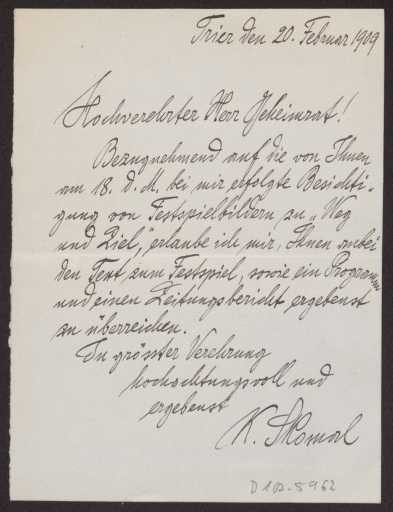 Trier den 20. Februar 1909
Hochverehrter Herr Geheimrat!
Bezugnehmend auf die von Ihnen
am 18. d. M. bei mir erfolgte Besichti-
gung von Festspielbildern zu „Weg
und Ziel," erlaube ich mir, Ihnen anbei
den Text zum Festspiel, sowie ein Programm
und einen Zeitungsbericht ergebenst
zu überreichen.
In grösster Verehrung
hochachtungsvoll und
ergebenst
K. Skomal